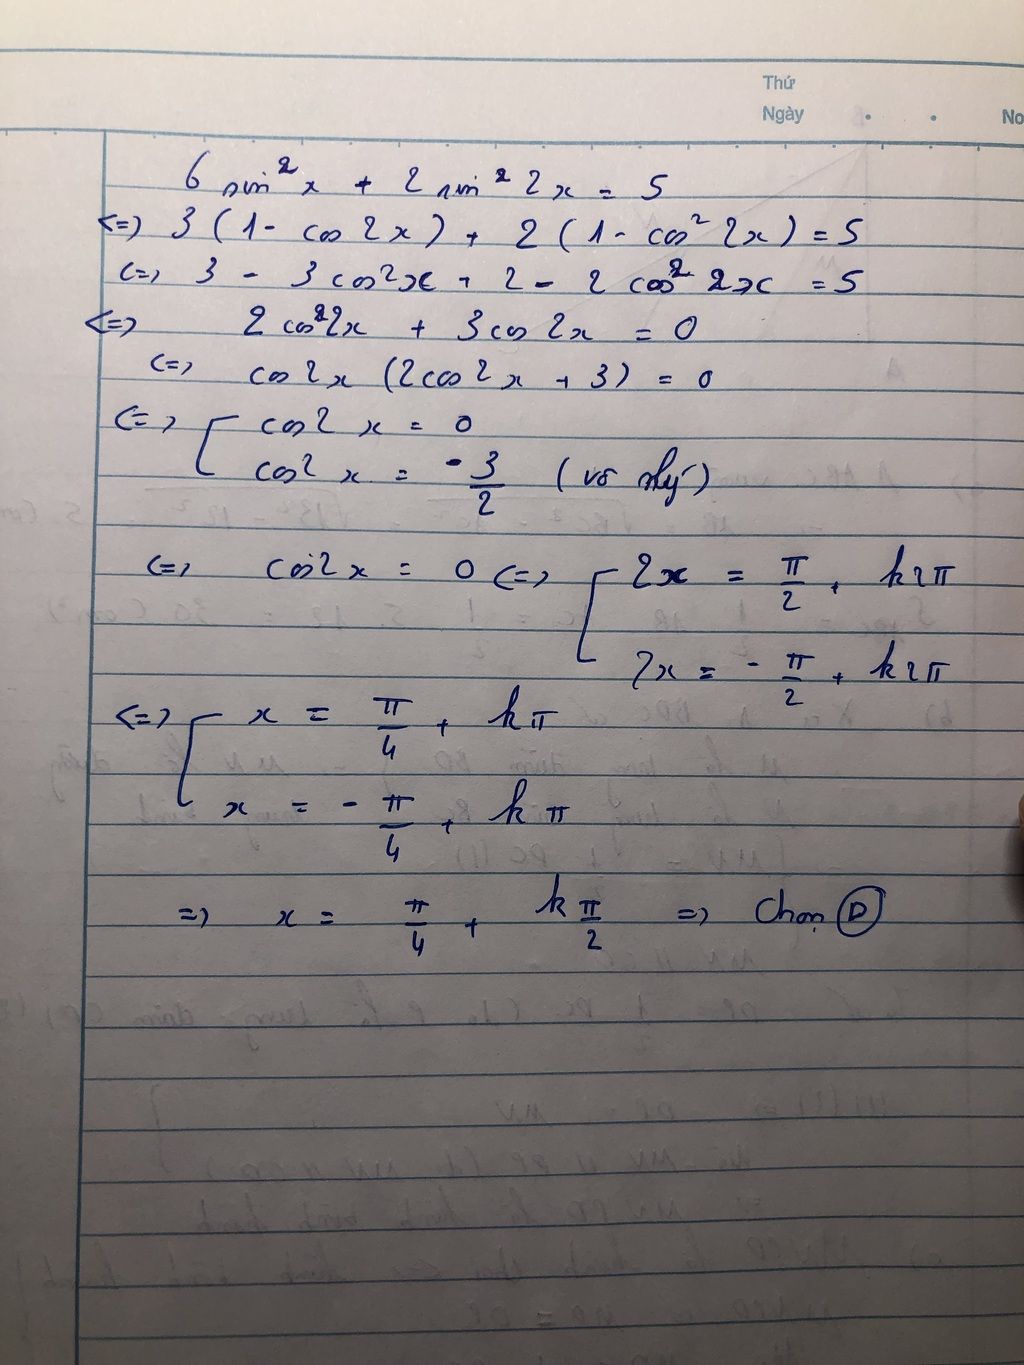 Thứ
Ngày . . No
6 sin² x + 2 sin² 2x = 5
<=> 3 (1 - cos 2x) + 2 (1 - cos² 2x) = 5
<=> 3 - 3 cos 2x + 2 - 2 cos² 2x = 5
<=> 2 cos² 2x + 3 cos 2x = 0
<=> cos 2x (2 cos 2x + 3) = 0
<=> [ cos 2x = 0
cos 2x = - 3/2 (vô lý)
<=> cos 2x = 0 <=> [ 2x = π/2 + k2π
2x = - π/2 + k2π
<=> [ x = π/4 + kπ
x = - π/4 + kπ
=> x = π/4 + kπ/2 => Chọn D